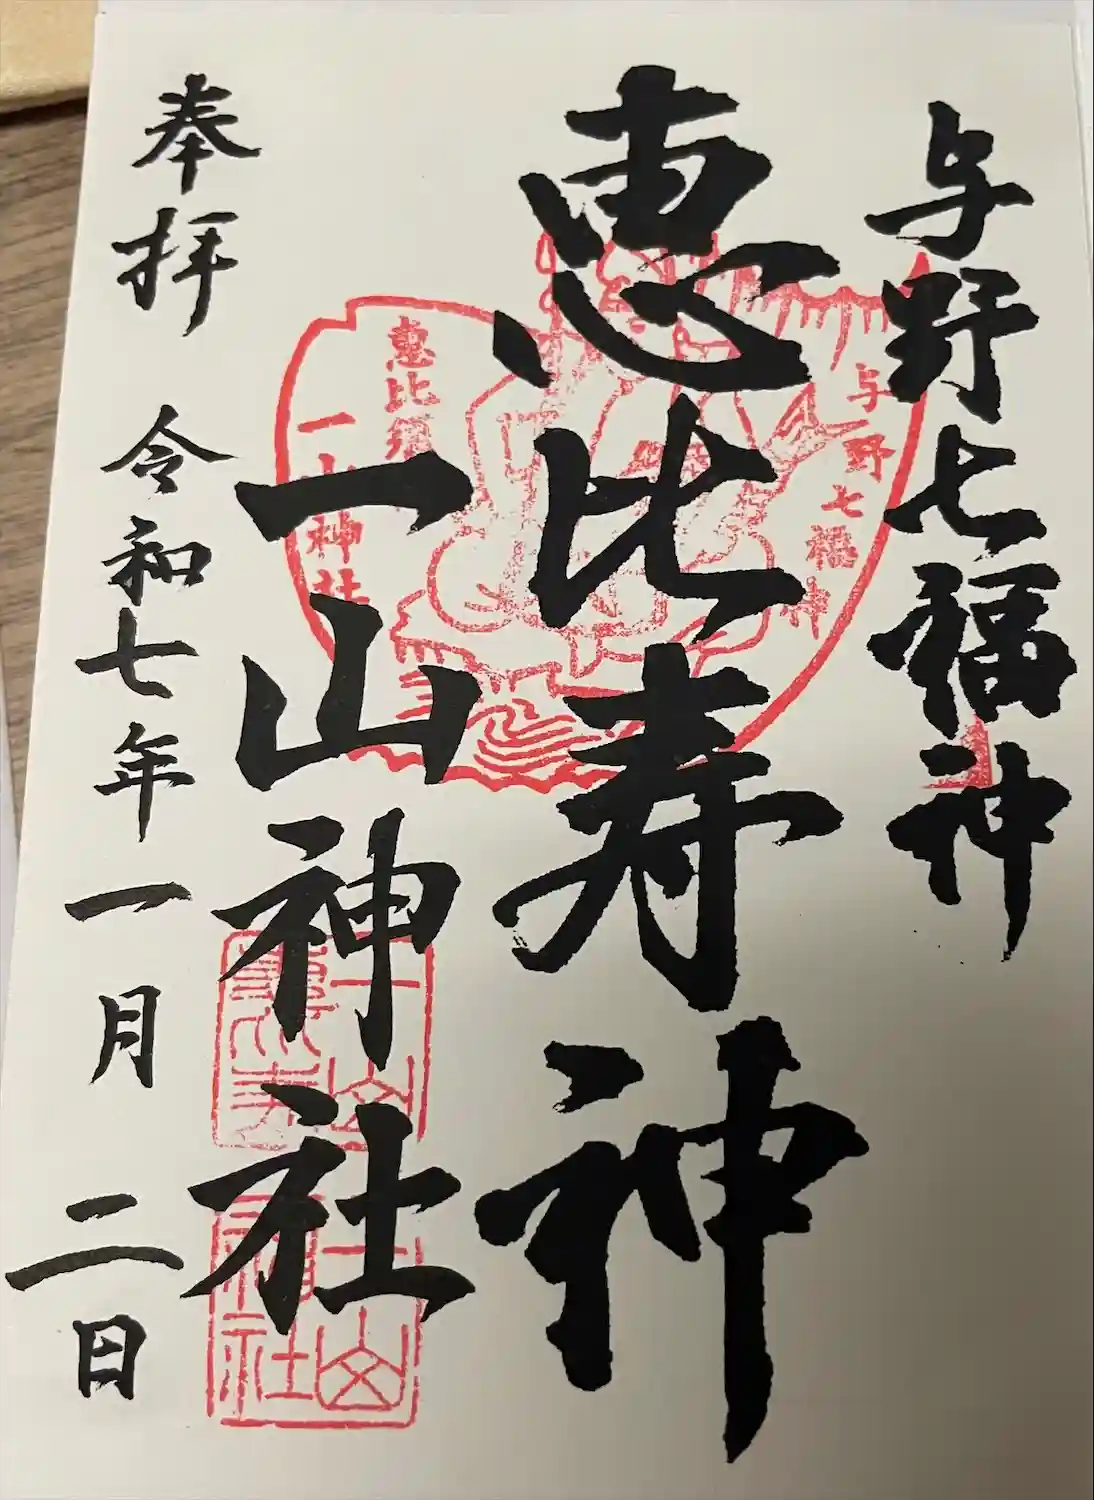 与野七福神
恵比寿神
一山神社
奉拝
令和七年一月二日
与野七福神
恵比須
一山神社